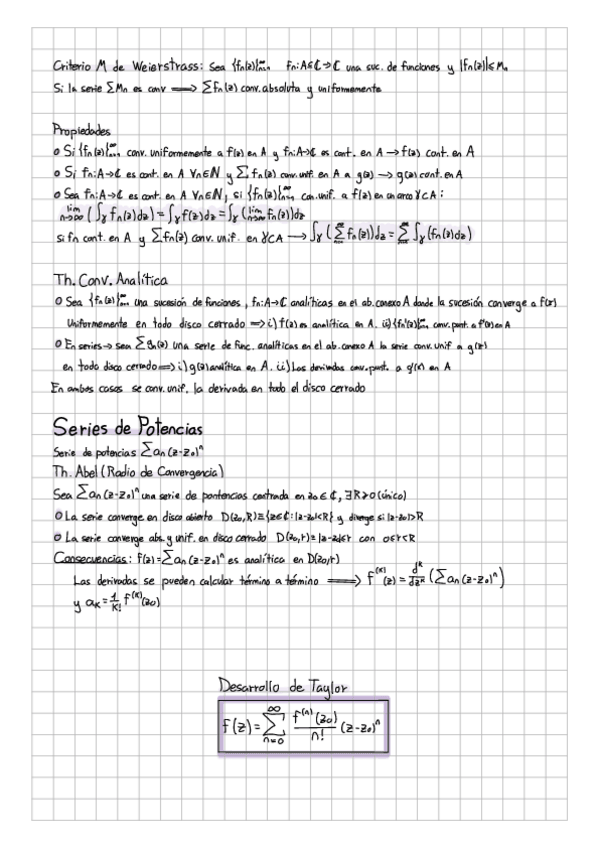 Criterio M de Weierstrass: Sea {fn(z)}∞n=1 fn:A⊆ℂ→ℂ una suc. de funciones y |fn(z)|≤Mn
Si la serie ∑Mn es conv ⟹ ∑fn(z) conv. absoluta y uniformemente
Propiedades
o Si {fn(z)}∞n=1 conv. uniformemente a f(z) en A y fn:A→ℂ es cont. en A → f(z) cont. en A
o Si fn:A→ℂ es cont. en A ∀n∈ℕ y ∑fn(z) conv. unif. en A a g(z) → g(z) cont. en A
o Sea fn:A→ℂ es cont. en A ∀n∈ℕ, si {fn(z)}∞n=1 con. unif. a f(z) en un arco γ⊂A:
lim n→∞ (∫γ fn(z)dz) = ∫γ f(z)dz = ∫γ (lim n→∞ fn(z))dz
si fn cont. en A y ∑fn(z) conv. unif. en γ⊂A ⟶ ∫γ (∑fn(z))dz = ∑ ∫γ (fn(z)dz)
Th. Conv. Analítica
o Sea {fn(z)}∞n=1 una sucesión de funciones, fn:A→ℂ analíticas en el ab. conexo A donde la sucesión converge a f(z)
uniformemente en todo disco cerrado ⟹ i) f(z) es analítica en A. ii) {fn'(z)}∞n=1 conv. punt. a f'(z) en A
o En series → sea ∑gn(z) una serie de func. analíticas en el ab. conexo A la serie conv. unif a g(z)
en todo disco cerrado ⟹ i) g(z) analítica en A. ii) Las derivadas conv. punt. a g'(z) en A
En ambos casos se conv. unif. la derivada en todo el disco cerrado
Series de Potencias
Serie de potencias ∑an(z-z₀)ⁿ
Th. Abel (Radio de Convergencia)
Sea ∑an(z-z₀)ⁿ una serie de pontencias centrada en z₀∈ℂ, ∃R≥0 (único)
o La serie converge en disco abierto D(z₀,R)≡{z∈ℂ:|z-z₀|<R} y diverge si |z-z₀|>R
o La serie converge abs. y unif. en disco cerrado D(z₀,r)≡|z-z₀|≤r con 0≤r<R
Consecuencias: f(z)=∑an(z-z₀)ⁿ es analítica en D(z₀,r)
Las derivadas se pueden calcular término a término ⟹ f⁽ᵏ⁾(z) = dᵏ/dzᵏ (∑an(z-z₀)ⁿ)
y aₖ = 1/k! f⁽ᵏ⁾(z₀)
Desarrollo de Taylor
f(z) = ∑∞n=0 f⁽ⁿ⁾(z₀)/n! (z-z₀)ⁿ